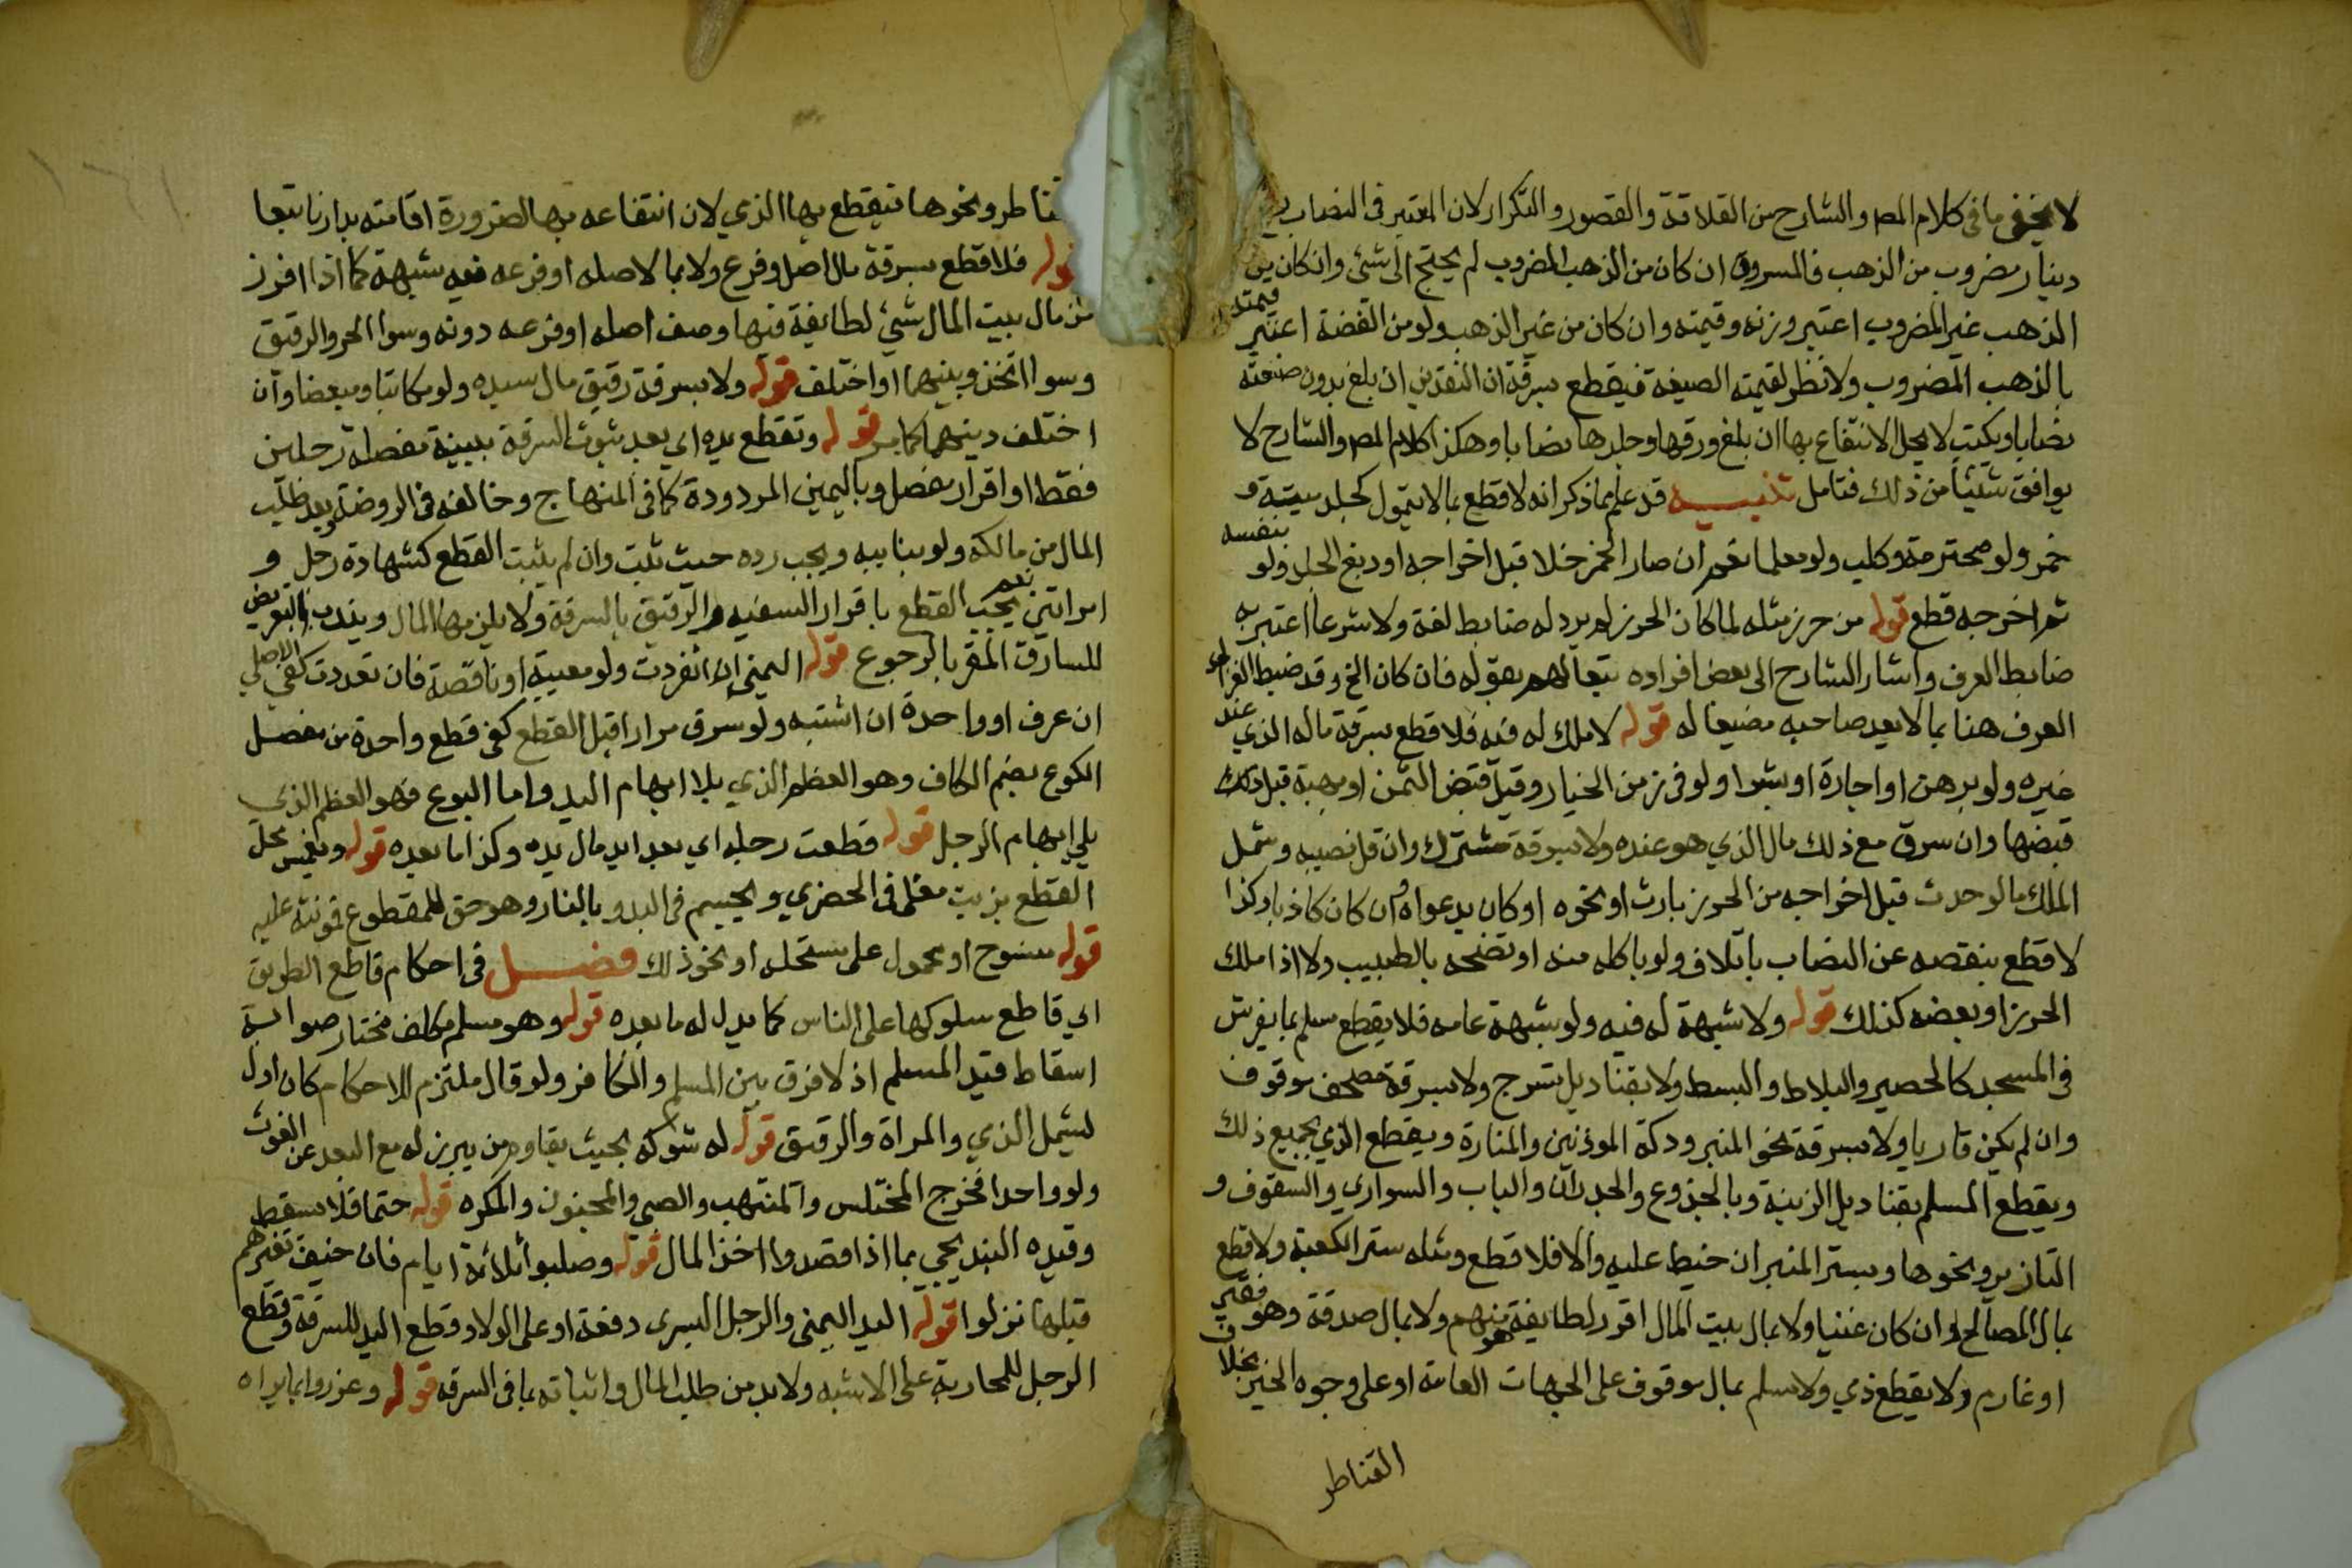 لا يخفى ما في كلام المص والشارح من القلاقة والقصور والتكرار لان المعتبر في النصاب
دينار مضروب من الذهب فالمسروق ان كان من الذهب المضروب لم يحتج الى شئ وان كان من
الذهب غير المضروب اعتبر وزنه وقيمته وان كان من غير الذهب ولو من الفضة اعتبر قيمته
بالذهب المضروب ولا نظر لقيمته الصيغة فيقطع بسرقة ان النقدين ان بلغ بدون صنعته
نصابا وبكتب لا يحل الانتفاع بها ان بلغ ورقها وجلدها نصابا وهكذا كلام المص والشارح لا
يوافق شيئا من ذلك فتامل تنبيه قد علم بما ذكر انه لا قطع بما لا يتمول كجلد ميتة و
خمر ولو محترمة وكلب ولو معلما نعم ان صار الخمر خلا قبل اخراجه او دبغ الجلد ولو بنفسه
ثم اخرجه قطع قوله من حرز مثله لما كان الحرز لم يرد له ضابط لغة ولا شرعا اعتبر به
ضابط العرف واشار الشارح الى بعض افراده تبعا لهم بقوله فان كان الخ وقد ضبط الغزالي
العرف هنا بما لا يعد صاحبه مضيعا له قوله لا ملك له فيه فلا قطع بسرقة ماله الذي عند
غيره ولو برهن او اجارة او بشرا ولو في زمن الخيار وقبل قبض الثمن او بهبة قبل
قبضها وان سرق مع ذلك مال الذي هو عنده ولا بسرقة مشترك وان قل نصيبه وشمل
الملك ما لو حدث قبل اخراجه من الحرز بارث او نحوه او كان بدعواه وان كان كاذبا وكذا
لا قطع بنقصه عن النصاب باتلاف ولو باكله منه او تضمخه بالطيب ولا اذا ملك
الحرز او بعضه كذلك قوله ولا شبهة له فيه ولو بشبهة عامه فلا يقطع مسلم بما يفرش
في المسجد كالحصير والبلاط والبسط ولا بقناديل تسرج ولا بسرقة مصحف موقوف
وان لم يكن قاريا ولا بسرقة نحو المنبر ودكة الموذنين والمنارة ويقطع الذمي بجميع ذلك
ويقطع المسلم بقناديل الزينة وبالجذوع والجدران والباب والسواري والسقوف و
التازير ونحوها وبستر المنبر ان خيط عليه والا فلا قطع ومثله ستر الكعبة ولا قطع
بمال المصالح وان كان غنيا ولا بمال بيت المال افرز لطايفة هو منهم ولا بمال صدقة وهو فقير
او غارم ولا يقطع ذمي ولا مسلم بمال موقوف على الجهات العامة او على وجوه الخير بخلاف
القناطر
قناطر ونحوها فيقطع بها الذمي لان انتفاعه بها لضرورة اقامته بدارنا تبعا
قوله فلا قطع بسرقة مال اصل وفرع ولا بما لاصله او فرعه فيه شبهة كما اذا افرز
من مال بيت المال شيئ لطايفة فيها وصف اصله او فرعه دونه وسوا الحر والرقيق
وسوا اتخذ دينهما او اختلف قوله ولا بسرقة رقيق مال سيده ولو مكاتبا ومبعضا وان
اختلف دينهما كما مر قوله وتقطع يده اي بعد ثبوت السرقة ببينة مفصلة رجلين
فقط او اقرار مفصل وباليمين المردودة كما في المنهاج وخالفه في الروضة وبعد طلب
المال من مالكه ولو بنايبه ويجب رده حيث ثبت وان لم يثبت القطع كشهادة رجل و
امراتين نعم يجب القطع باقرار السفيه والرقيق بالسرقة ولا يلزمهما المال ويندب التعريض
للسارق المقر بالرجوع قوله اليمنى ان انفردت ولو معيبة او ناقصة فان تعددت كفى الاصلي
ان عرف او واحدة ان اشتبه ولو سرق مرارا قبل القطع كفى قطع واحدة من مفصل
الكوع بضم الكاف وهو العظم الذي يلا ابهام اليد واما البوع فهو العظم الذي
يلي ابهام الرجل قوله قطعت رجله اي بعد اندمال يده وكذا ما بعده قوله وتغمس محل
القطع بزيت مغلى في الحضري ويحسم في البدو بالنار وهو حق للمقطوع فمونته عليه
قوله منسوج او محمول على مستحل او نحو ذلك فصل في احكام قاطع الطريق
اي قاطع سلوكها على الناس كما يدل له ما بعده قوله وهو مسلم مكلف مختار صوابه
اسقاط قيد المسلم اذ لا فرق بين المسلم والكافر ولو قال ملتزم للاحكام كان اولى
ليشمل الذمي والمراة والرقيق قوله له شوكة بحيث يقاوم من يبرز له مع البعد عن الغوث
ولو واحدا فخرج المختلس والمنتهب والصبي والمجنون والمكره قوله حتما فلا يسقط
وقيده البنديجي بما اذا قصدوا اخذ المال قوله وصلبوا ثلاثة ايام فان خيف تغيرهم
قبلها نزلوا قوله اليد اليمنى والرجل اليسرى دفعة او على الولا وقطع اليد للسرقة وقطع
الرجل للمحاربة على الاشبه ولا بد من طلب المال واثباته بما في السرقة قوله وعزروا بما يراه